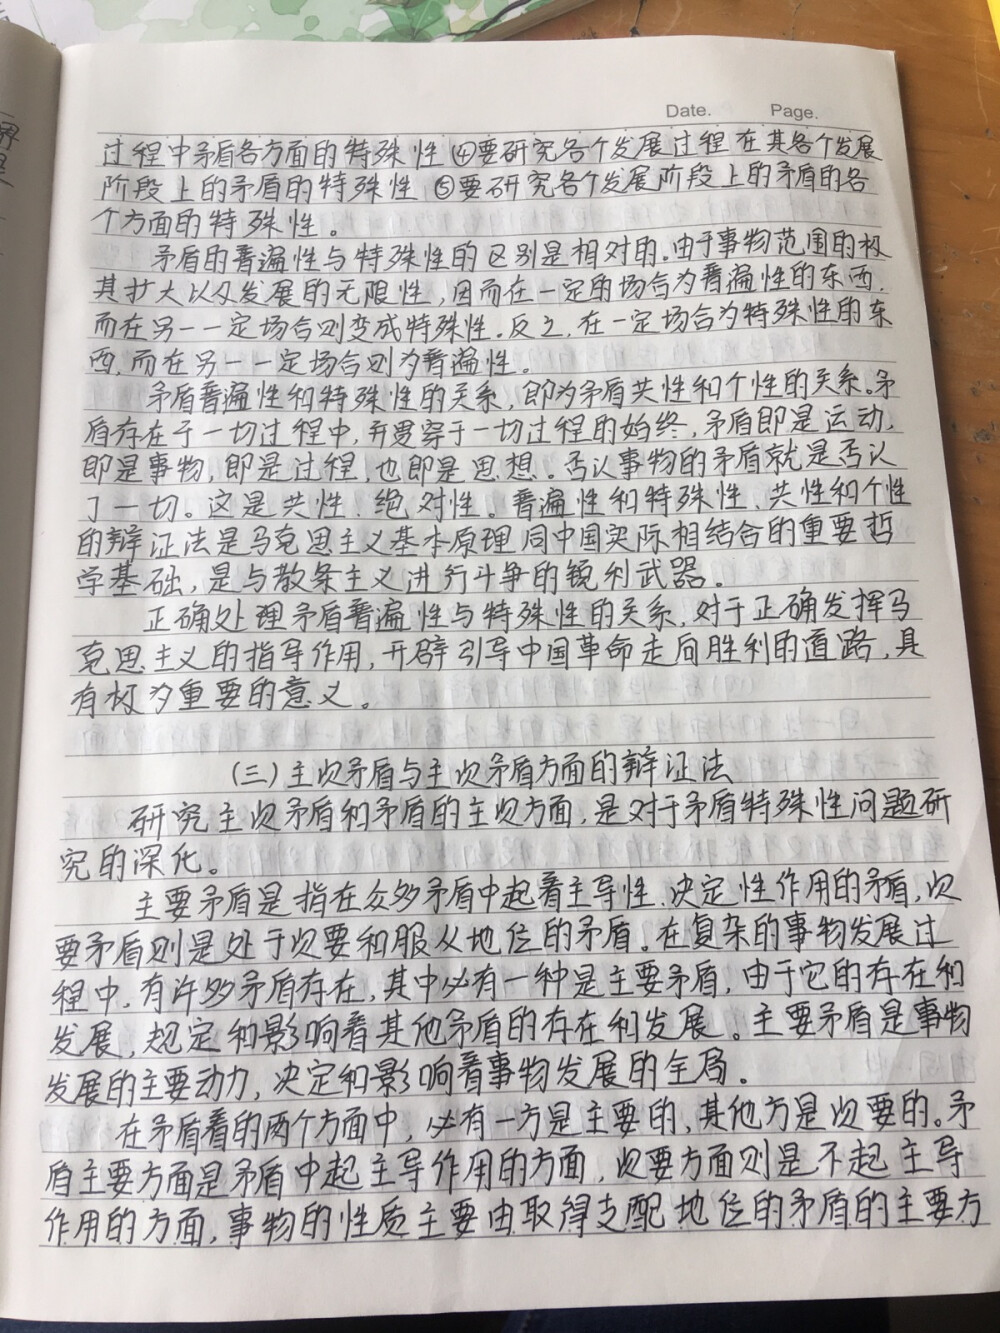 Date. Page.
过程中矛盾各方面的特殊性④要研究各个发展过程在其各个发展
阶段上的矛盾的特殊性 ⑤要研究各个发展阶段上的矛盾的各
个方面的特殊性。
矛盾的普遍性与特殊性的区别是相对的.由于事物范围的极
其扩大以及发展的无限性,因而在一定的场合为普遍性的东西,
而在另一一定场合则变成特殊性.反之,在一定场合为特殊性的东
西,而在另一一定场合则为普遍性。
矛盾普遍性和特殊性的关系,即为矛盾共性和个性的关系。矛
盾存在于一切过程中,并贯穿于一切过程的始终,矛盾即是运动,
即是事物,即是过程,也即是思想。否认事物的矛盾就是否认
了一切。这是共性、绝对性。普遍性和特殊性、共性和个性
的辩证法是马克思主义基本原理同中国实际相结合的重要哲
学基础,是与教条主义进行斗争的锐利武器。
正确处理矛盾普遍性与特殊性的关系,对于正确发挥马
克思主义的指导作用,开辟引导中国革命走向胜利的道路,具
有极为重要的意义。
(三)主次矛盾与主次矛盾方面的辩证法
研究主次矛盾和矛盾的主次方面,是对于矛盾特殊性问题研
究的深化。
主要矛盾是指在众多矛盾中起着主导性、决定性作用的矛盾,次
要矛盾则是处于次要和服从地位的矛盾。在复杂的事物发展过
程中,有许多矛盾存在,其中必有一种是主要矛盾,由于它的存在和
发展,规定和影响着其他矛盾的存在和发展。主要矛盾是事物
发展的主要动力,决定和影响着事物发展的全局。
在矛盾着的两个方面中,必有一方是主要的,其他方是次要的。矛
盾主要方面是矛盾中起主导作用的方面,次要方面则是不起主导
作用的方面,事物的性质主要由取得支配地位的矛盾的主要方